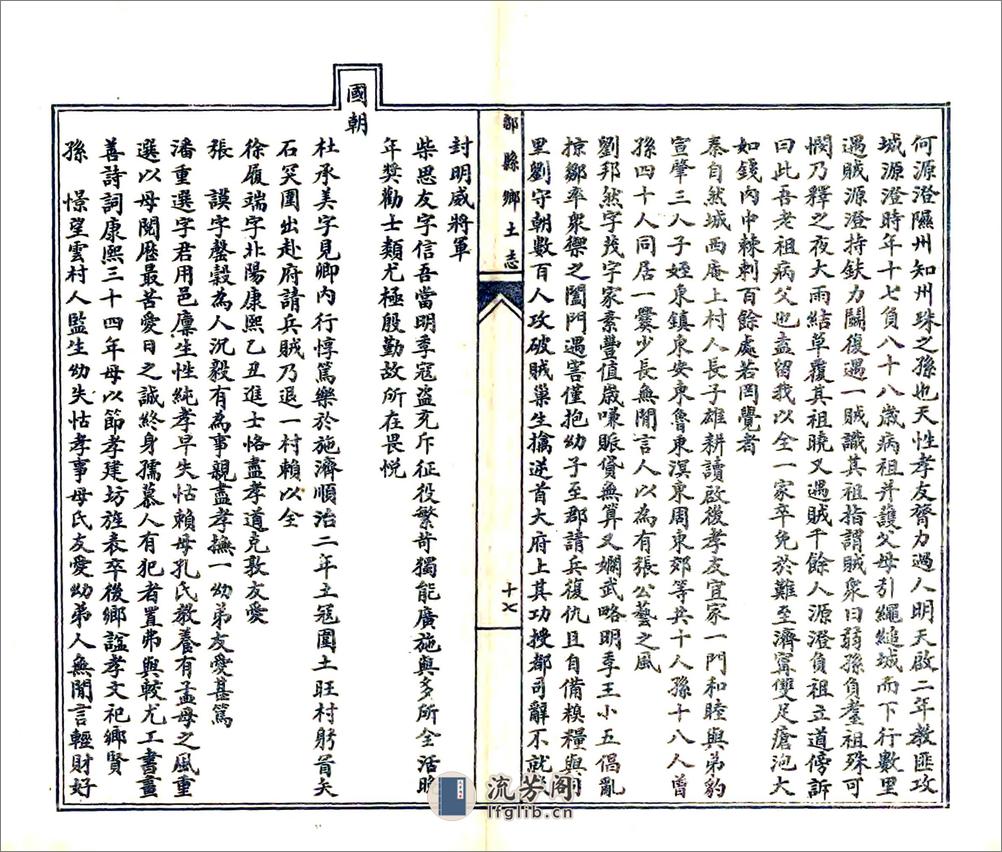 何源澄隰州知州珠之孫也天性孝友膂力過人明天啟二年教匪攻
城源澄時年十七負八十八歲病祖并護父母引繩縋城而下行數里
遇賊源澄持鈇力鬭復遇一賊識其祖指謂賊衆曰弱孫負耄祖殊可
憫乃釋之夜大雨結草覆其祖曉又遇賊千餘人源澄負祖立道傍訴
曰此吾老祖病父也盍留我以全一家卒免於難至濟寧雙足瘡泡大
如錢內中棘刺百餘處若罔覺者
秦自然城西庵上村人長子雄耕讀啟後孝友宜家一門和睦與弟豹
宣肇三人子姪東鎮東安東魯東溟東周東郊等共十人孫十八人曾
孫四十人同居一爨少長無閒言人以為有張公藝之風
劉邦然字茂字家素豐值歲嗛賑貸無算又嫻武略明季王小五倡亂
掠鄒率衆禦之闔門遇害僅抱幼子至郡請兵復仇且自備糗糧與
里劉守朝數百人攻破賊巢生擒逆首大府上其功授都司辭不就
封明威將軍
柴思友字信吾當明季寇盜充斥征役繁苛獨能廣施與多所全活
年獎勸士類尤極殷勤故所在畏悦
國朝
杜承美字見卿內行惇篤樂於施濟順治二年土寇圍土旺村躬冒矢
石突圍出赴府請兵賊乃退一村賴以全
徐履端字北陽康熙乙丑進士恪盡孝道克敦友愛
張　謨字罄穀為人沉毅有為事親盡孝撫一幼弟友愛甚篤
潘重選字君用邑廩生性純孝早失怙賴母孔氏教養有孟母之風重
選以母閱歷最苦愛日之誠終身孺慕人有犯者置弗與較尤工書畫
善詩詞康熙三十四年母以節孝建坊旌表卒後鄉諡孝文祀鄉賢
孫　憬望雲村人監生幼失怙孝事母氏友愛幼弟人無閒言輕財好
鄒縣鄉土志
十七
流芳阁
lfglib.cn